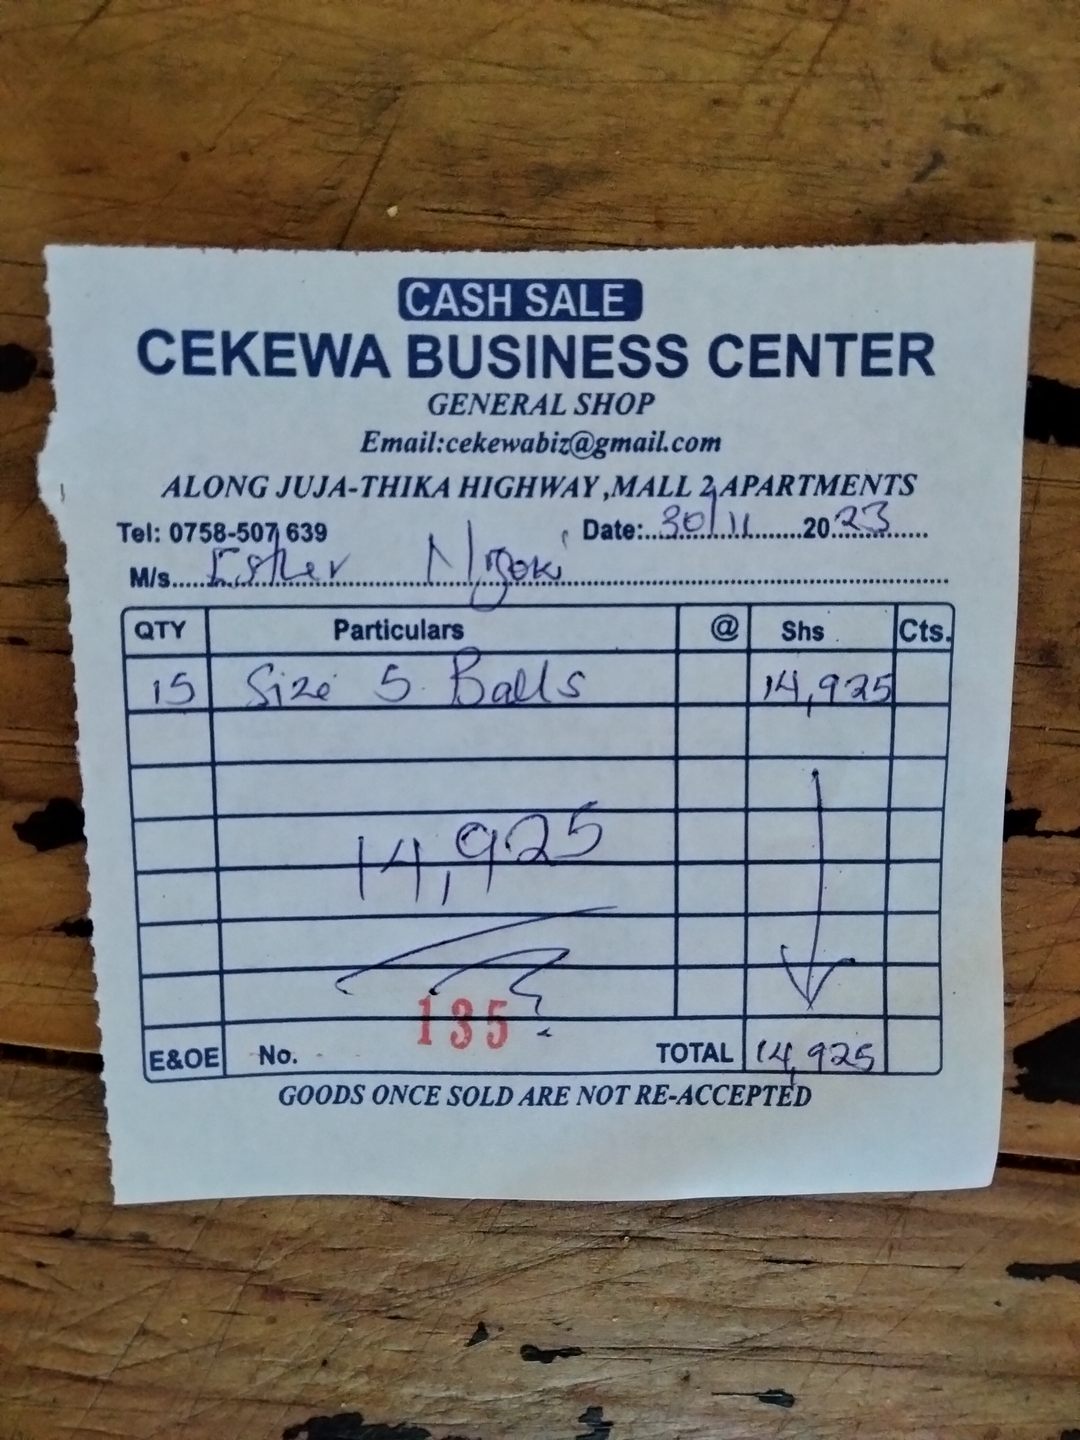 CASH SALE
CEKEWA BUSINESS CENTER
GENERAL SHOP
Email:cekewabiz@gmail.com
ALONG JUJA-THIKA HIGHWAY ,MALL 2 APARTMENTS
Tel: 0758-507 639 Date:...30/11........20 23......
M/s....Esther Njoki
QTY Particulars @ Shs . Cts.
15 Size 5 Balls 14,925
14,925
135
E&OE No. TOTAL 14,925
GOODS ONCE SOLD ARE NOT RE-ACCEPTED